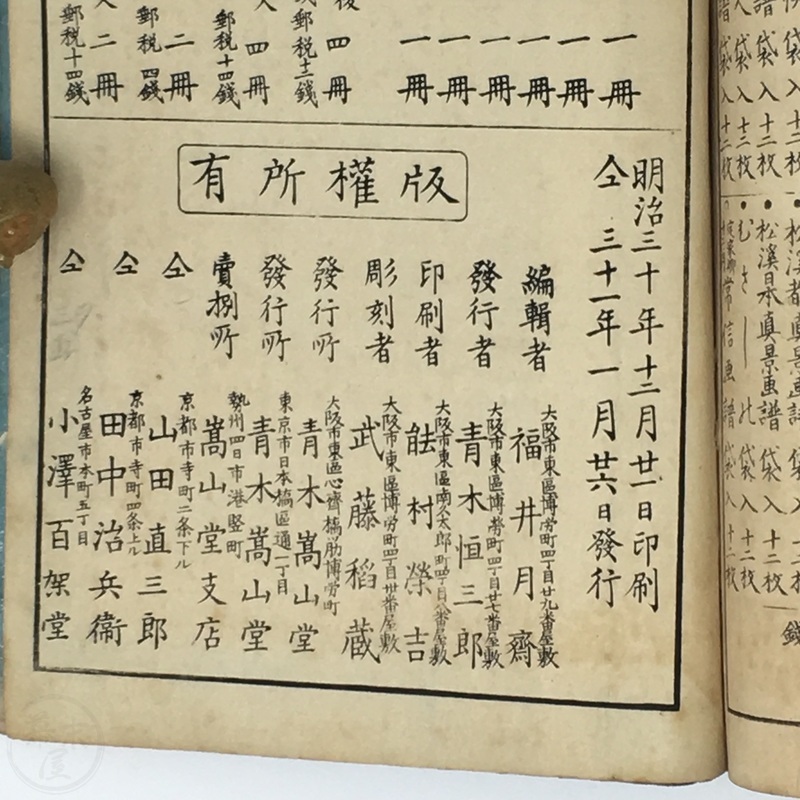 袋入十二枚
袋入十二枚
袋入十二枚
松溪日本真景画譜 袋入 十二枚
むさしの 袋入 十二枚
常信画譜 袋入 十二枚
錢
一冊
一冊
一冊
一冊
一冊
一冊
四冊
郵税十二錢
四冊
郵税十四錢
二冊
郵税四錢
二冊
郵税十四錢
版權所有
明治三十年十二月廿一日印刷
仝 三十一年一月廿六日發行
編輯者 大阪市東區博労町四丁目廿九番屋敷 福井月齋
發行者 大阪市東區博勞町四丁目廿七番屋敷 青木恒三郎
印刷者 大阪市東區南久太郎町四丁目八番屋敷 村榮吉
彫刻者 大阪市東區博労町四丁目廿番屋敷 武藤稻蔵
發行所 大阪市東區心齋橋筋博労町 青木嵩山堂
發行所 東京市日本橋區通一丁目 青木嵩山堂
賣捌所 勢州四日市港竪町 嵩山堂支店
仝 京都市寺町二条下ル 山田直三郎
仝 京都市寺町四条上ル 田中治兵衞
仝 名古屋市本町五丁目 小澤百架堂